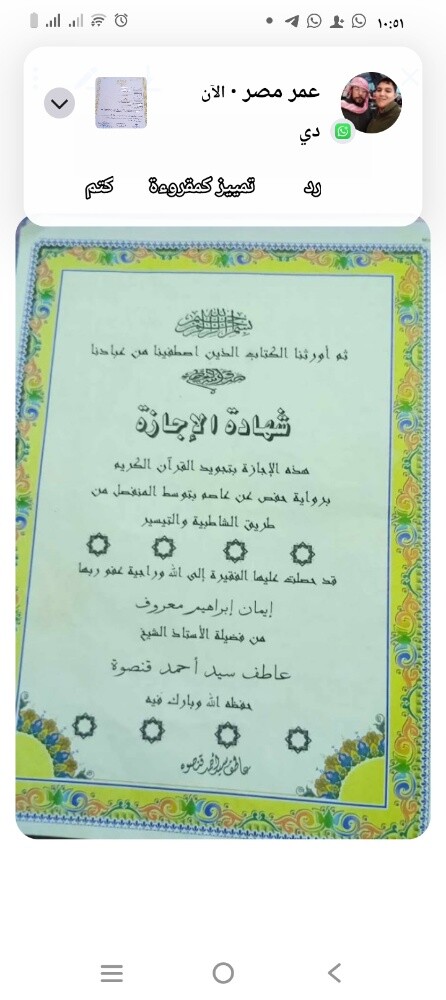 ١٠:٥١
عمر مصر • الآن
دي
رد تمييز كمقروءة كتم
بسم الله الرحمن الرحيم
ثم أورثنا الكتاب الذين اصطفينا من عبادنا
شهادة الإجازة
هذه الإجازة بتجويد القرآن الكريم
برواية حفص عن عاصم بتوسط المنفصل من
طريق الشاطبية والتيسير
قد حصلت عليها الفقيرة إلى الله وراجية عفو ربها
إيمان إبراهيم معروف
من فضيلة الأستاذ الشيخ
عاطف سيد أحمد قنصوة
حفظه الله وبارك فيه
عاطف سيد أحمد قنصوه